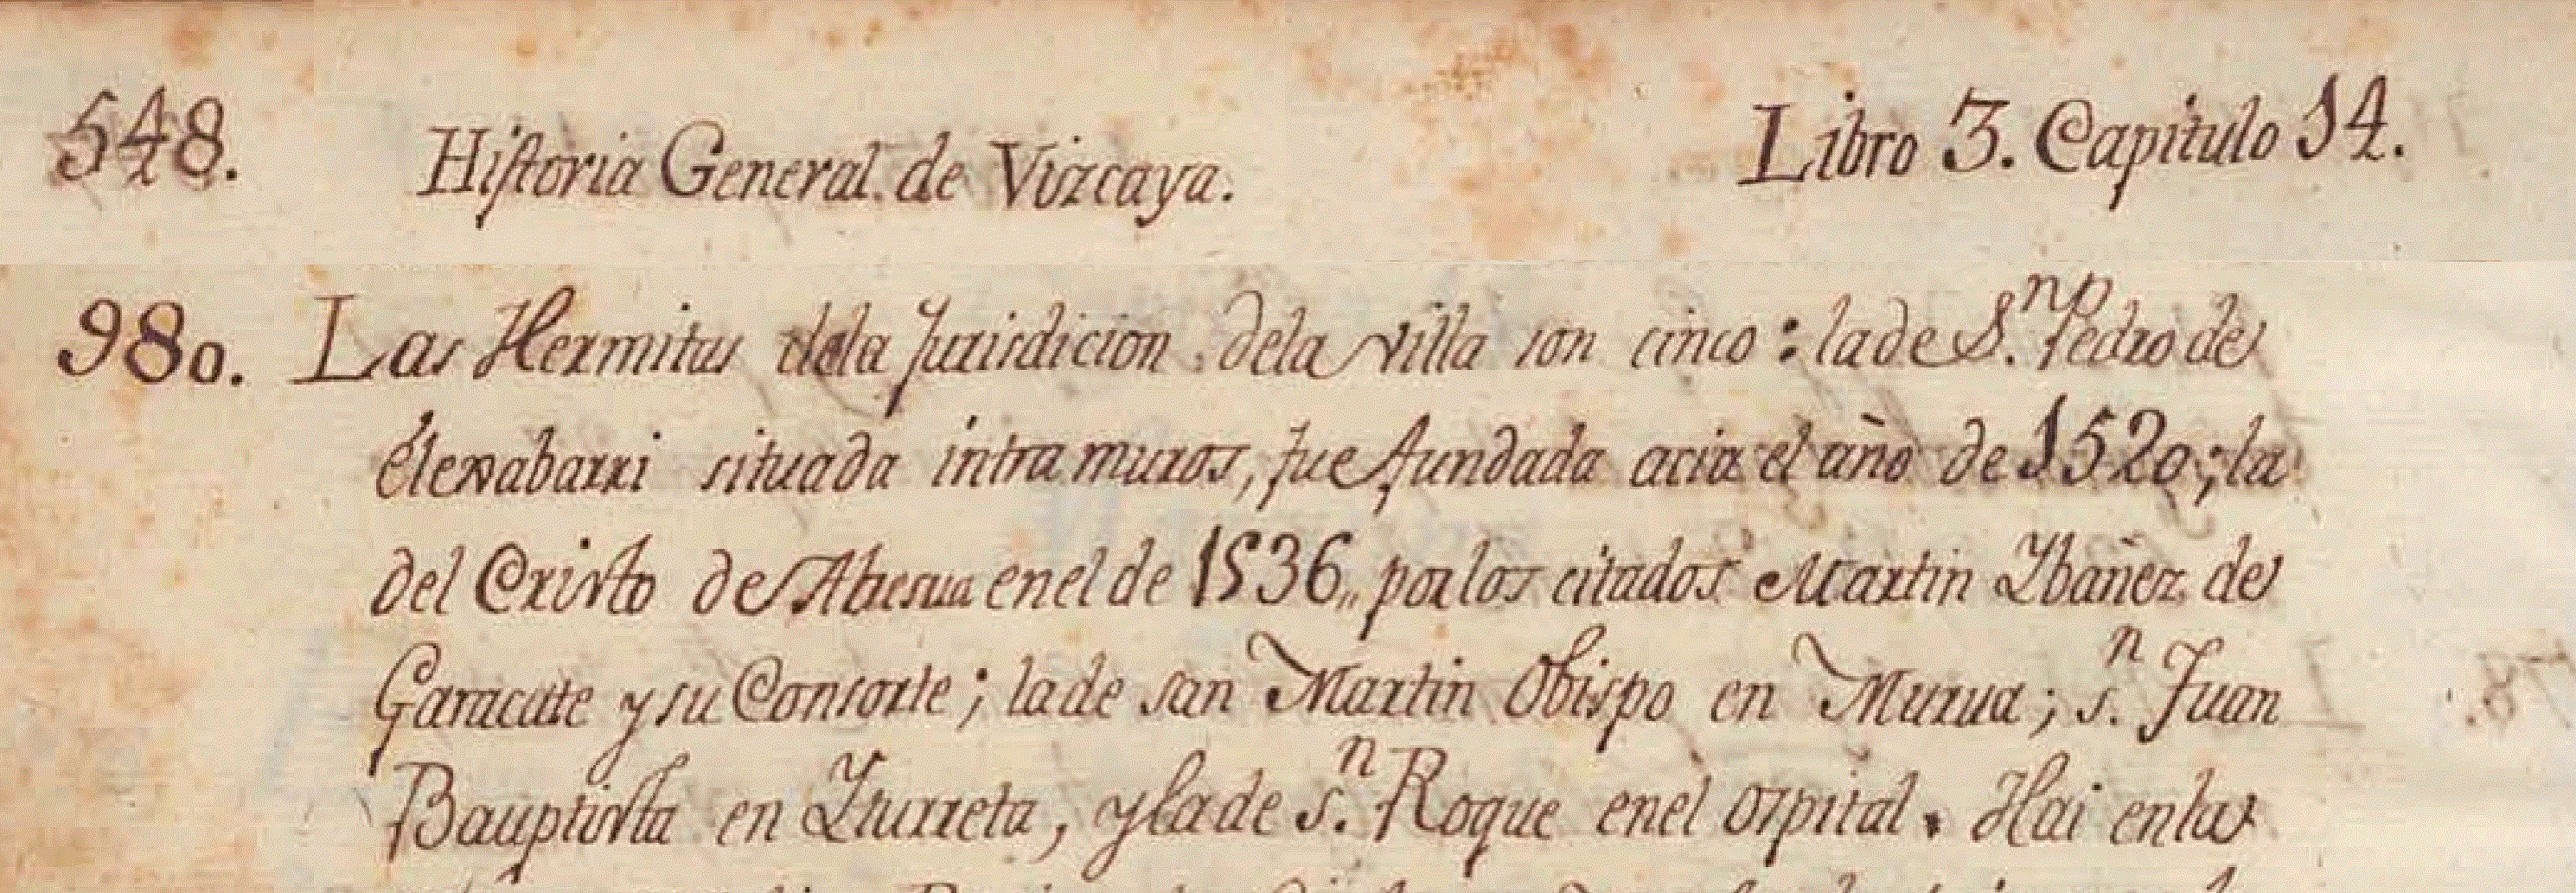 548. Historia General de Vizcaya. Libro 3. Capitulo 14.
980. Las Hermitas dela Jurisdicion dela villa son cinco: la de S.ⁿ Pedro de
Elexabarri situada intra muros, fue fundada acia el año de 1520; la
del Cristo de en el de 1536,, por los citados Martin Ybañez de
Garacate y su Consorte; la de san Martin Obispo en Murua; s.ⁿ Juan
Bauptista en Yturreta, y la de s.ⁿ Roque en el ospital. Hai en la